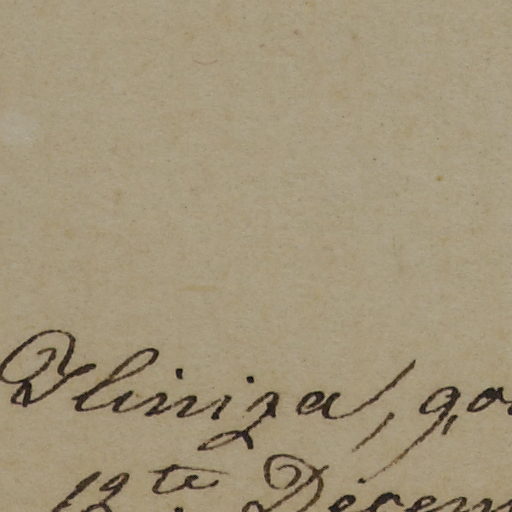 Iliniza, go
12te Decem